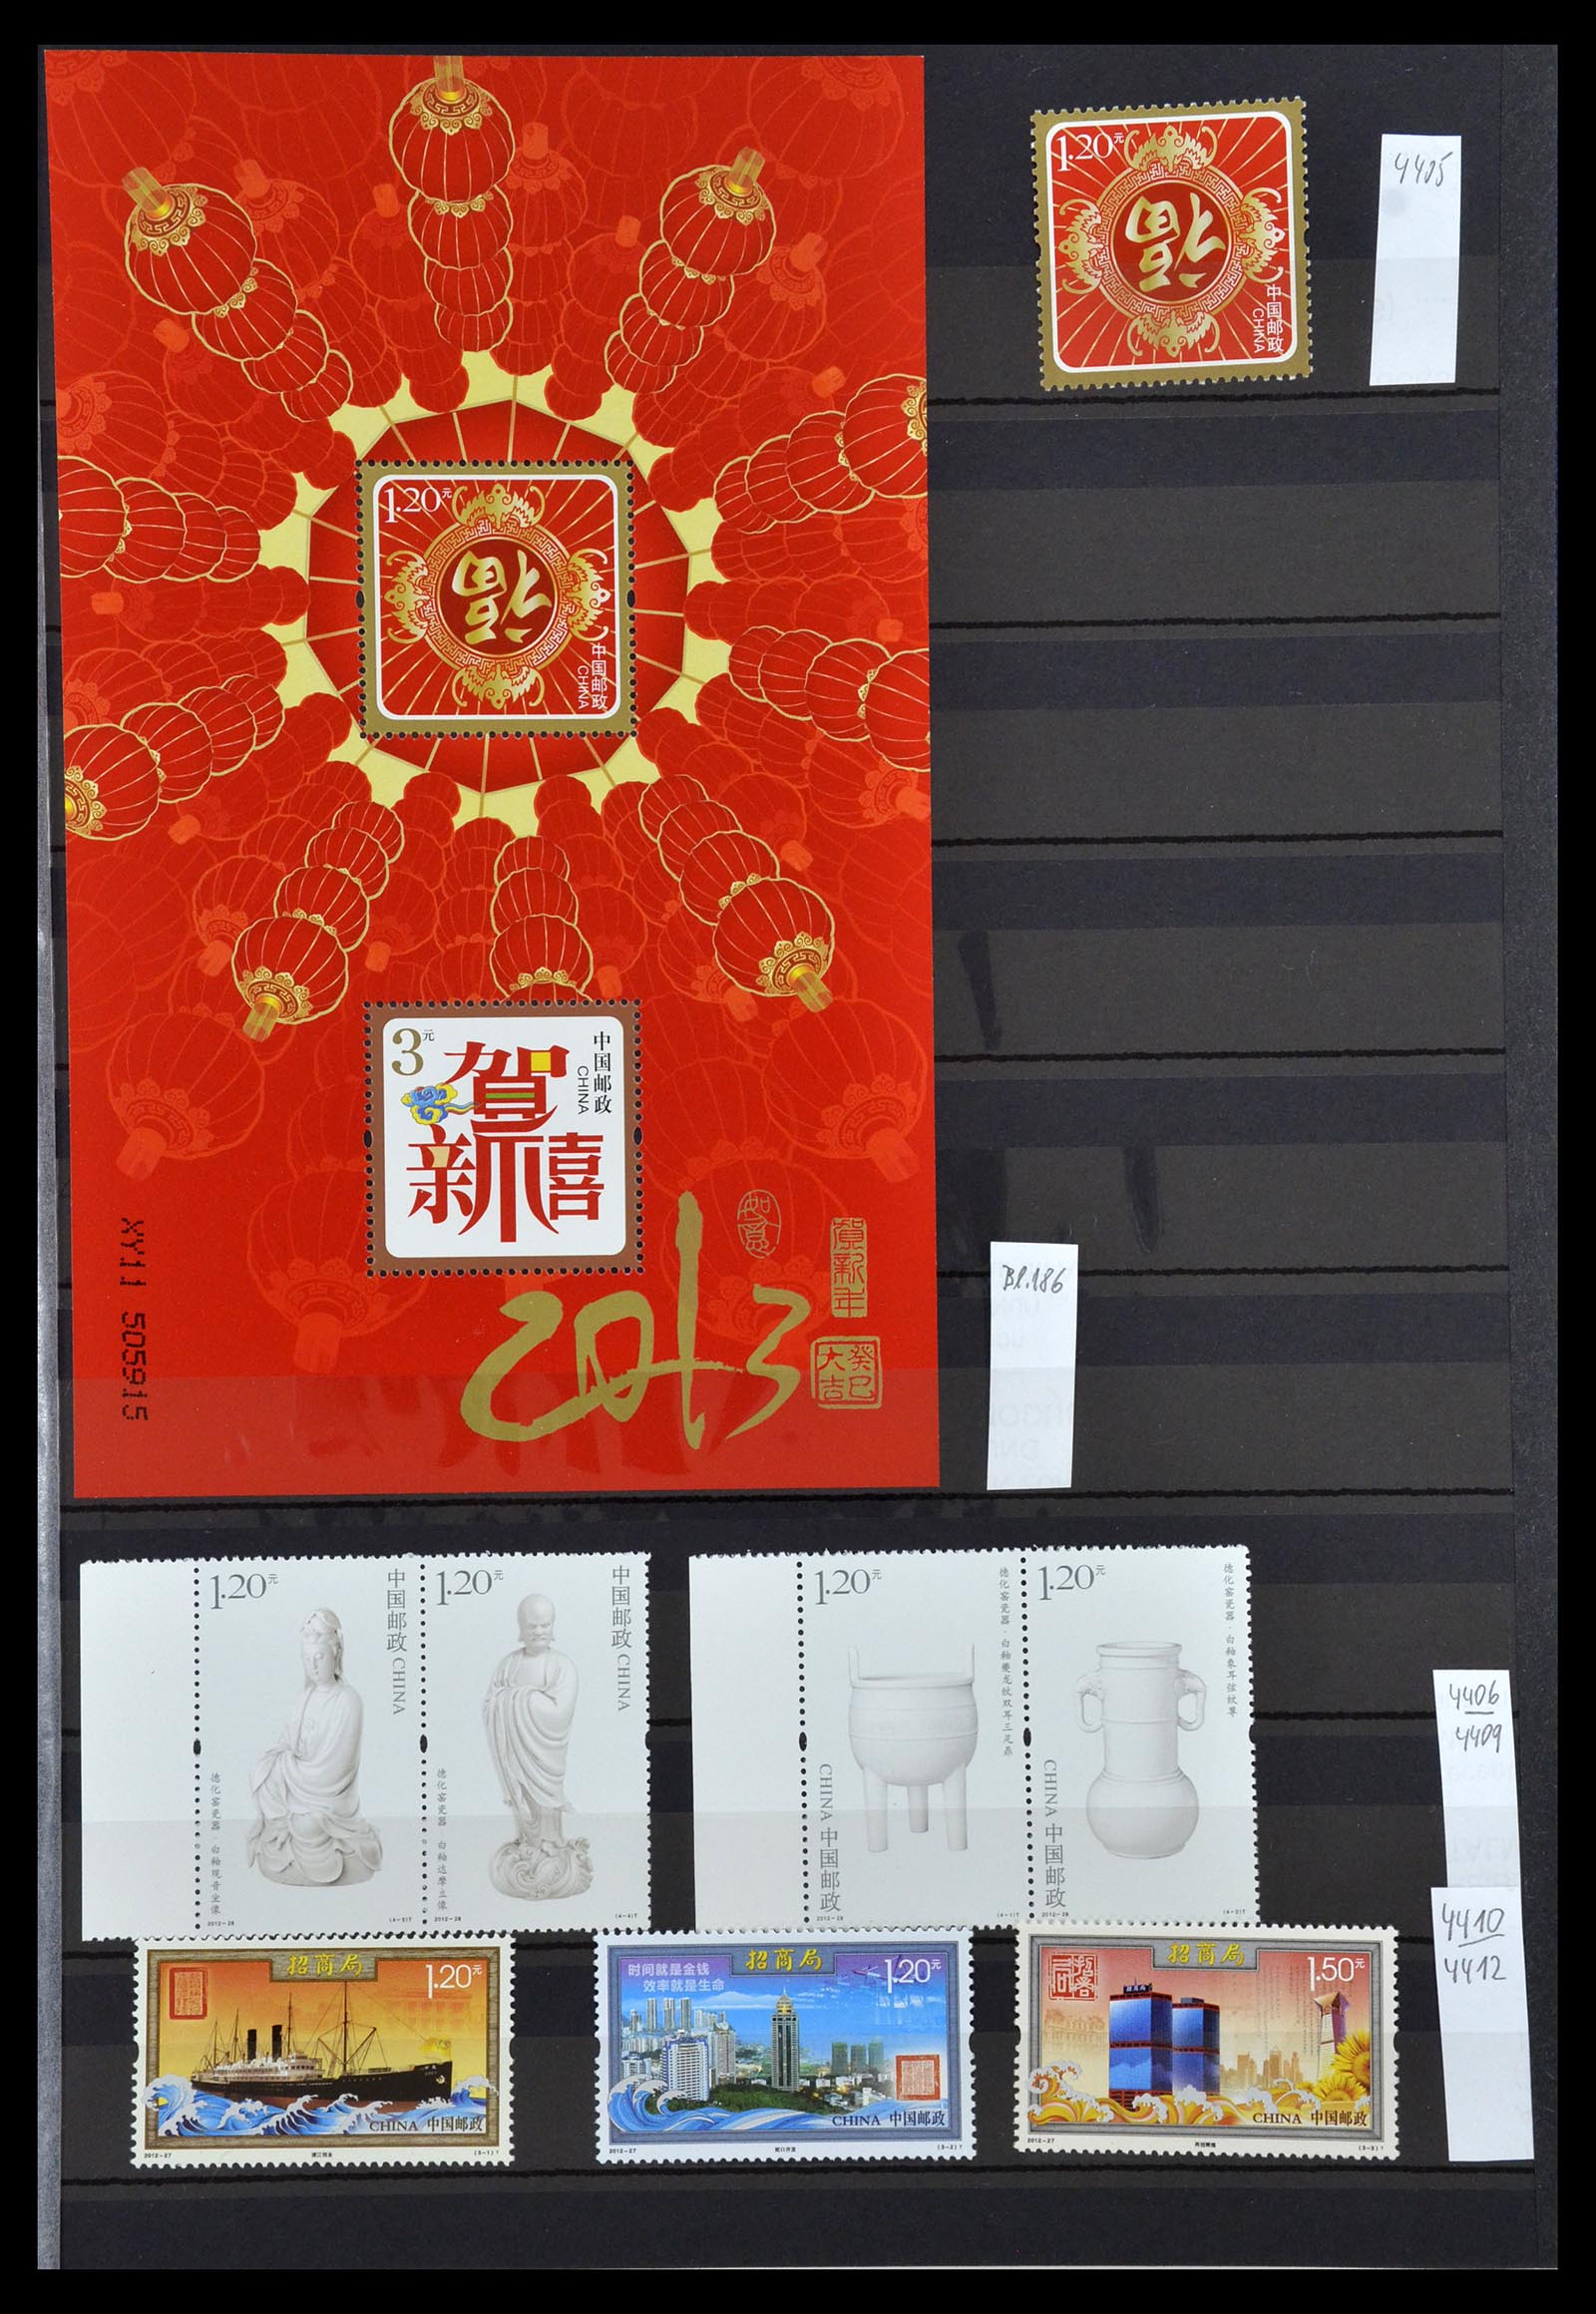 1.20元
福
中国邮政
CHINA
4405
1.20元
福
中国邮政
CHINA
3元
賀
新禧
中国邮政
CHINA
如意
賀新年
2013
癸巳
大吉
XY11 505915
Bl.186
1.20元
中国邮政 CHINA
德化窑瓷器·白釉观音坐像
2012-28
(4-3)T
1.20元
中国邮政 CHINA
德化窑瓷器·白釉达摩立像
2012-28
(4-4)T
1.20元
德化窑瓷器·白釉夔龙纹双耳三足鼎
CHINA 中国邮政
2012-28
(4-1)T
1.20元
德化窑瓷器·白釉象耳弦纹尊
CHINA 中国邮政
2012-28
(4-2)T
4406
4409
招商局
1.20元
CHINA 中国邮政
2012-27
(3-1)T
招商局
时间就是金钱
效率就是生命
1.20元
CHINA 中国邮政
2012-27
蛇口开发
(3-2)T
招商局
1.50元
招商局
CHINA 中国邮政
2012-27
再创辉煌
(3-3)T
4410
4412